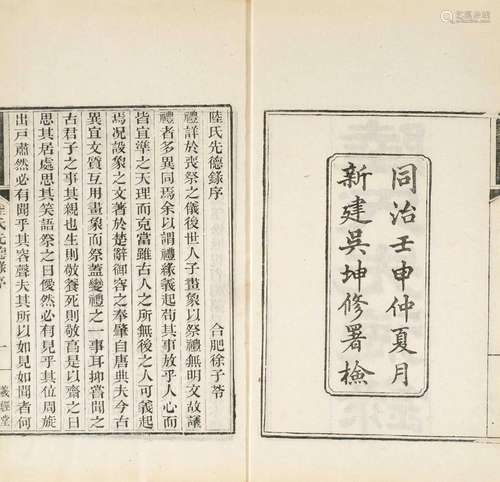 同治壬申仲夏月
新建吳坤修署檢
陸氏先德錄序
合肥徐子苓
禮詳於喪祭之儀後世人子畫象以祭禮無明文故議
禮者多異同焉余以謂禮緣義起苟其事放乎人心而
皆宜準之天理而克當雖古人之所無後之人可義起
焉况設象之文著於楚辭御容之奉肇自唐典夫今古
異宜文質互用畫象而祭蓋變禮之一事耳抑嘗聞之
古君子之事其親也生則敬養死則敬享是以齋之日
思其居處思其笑語祭之日僾然必有見乎其位周旋
出戶肅然必有聞乎其容聲夫其所以如見如聞者何
陸氏先德錄序
一
義經堂